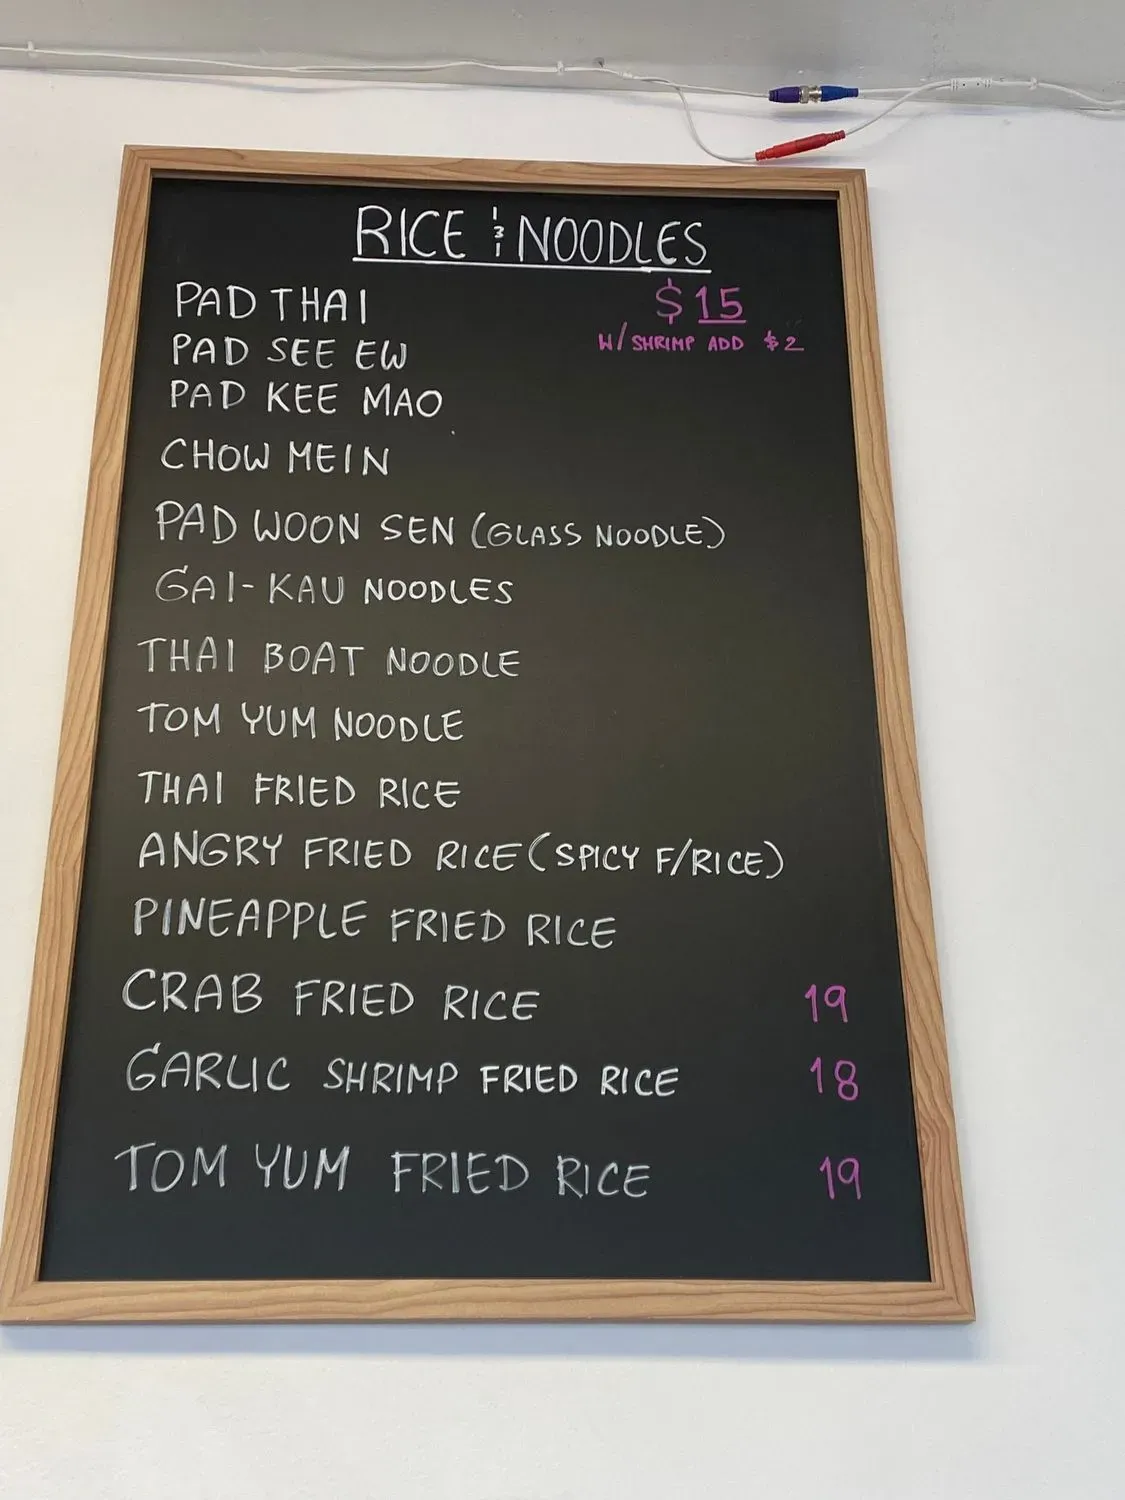 RICE & NOODLES
PAD THAI $15
PAD SEE EW W/ SHRIMP ADD $2
PAD KEE MAO
CHOW MEIN
PAD WOON SEN (GLASS NOODLE)
GAI-KAU NOODLES
THAI BOAT NOODLE
TOM YUM NOODLE
THAI FRIED RICE
ANGRY FRIED RICE (SPICY F/RICE)
PINEAPPLE FRIED RICE
CRAB FRIED RICE 19
GARLIC SHRIMP FRIED RICE 18
TOM YUM FRIED RICE 19